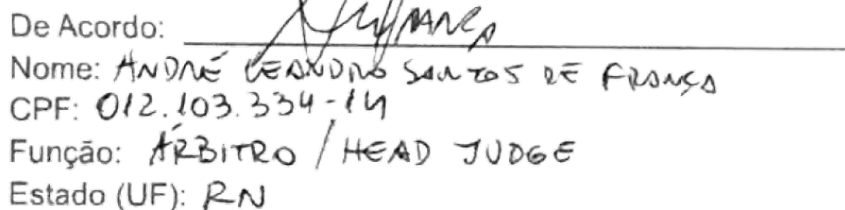 De Acordo:
Nome: ANDRÉ LEANDRO SANTOS DE FRANÇA
CPF: 012.103.334-14
Função: ÁRBITRO / HEAD JUDGE
Estado (UF): RN